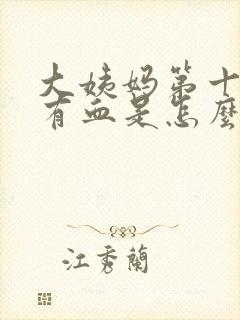 大姨妈第十
有血是怎麼
江秀蘭